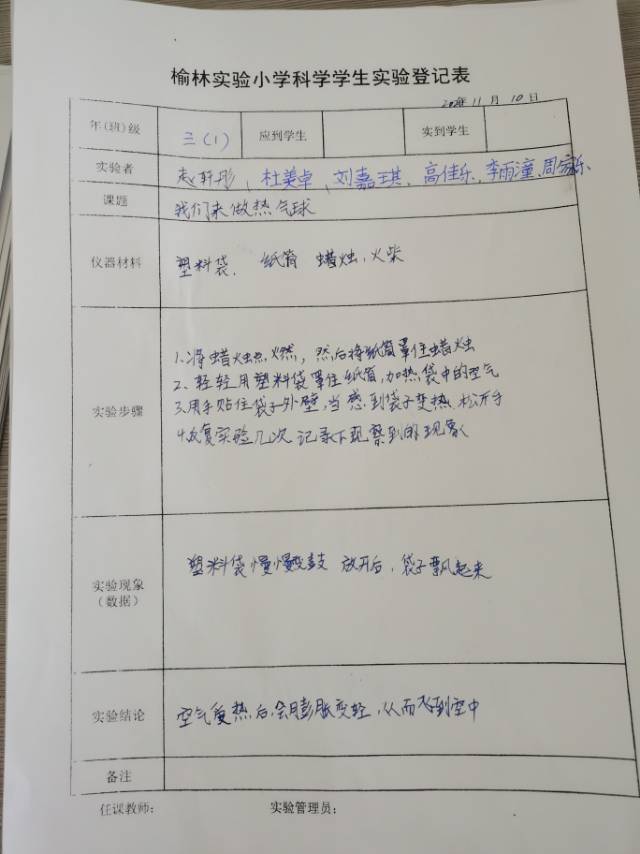 榆林实验小学科学学生实验登记表
年 11 月 10 日
年(班)级 三(1) 应到学生 实到学生
实验者 赵轩彤、杜美卓、刘嘉琪、高佳乐、李雨潼、周家乐
课题 我们来做热气球
仪器材料 塑料袋、 纸筒 蜡烛、火柴
实验步骤
1、将蜡烛点燃，然后将纸筒罩住蜡烛
2、轻轻用塑料袋罩住纸筒，加热袋中的空气
3、用手贴住袋子外壁，当感到袋子变热 松开手
4、反复实验几次 记录下观察到的现象
实验现象
(数据)
塑料袋慢慢变鼓 放开后，袋子飘起来
实验结论 空气受热后，会膨胀变轻，从而飞到空中
备注
任课教师： 实验管理员：